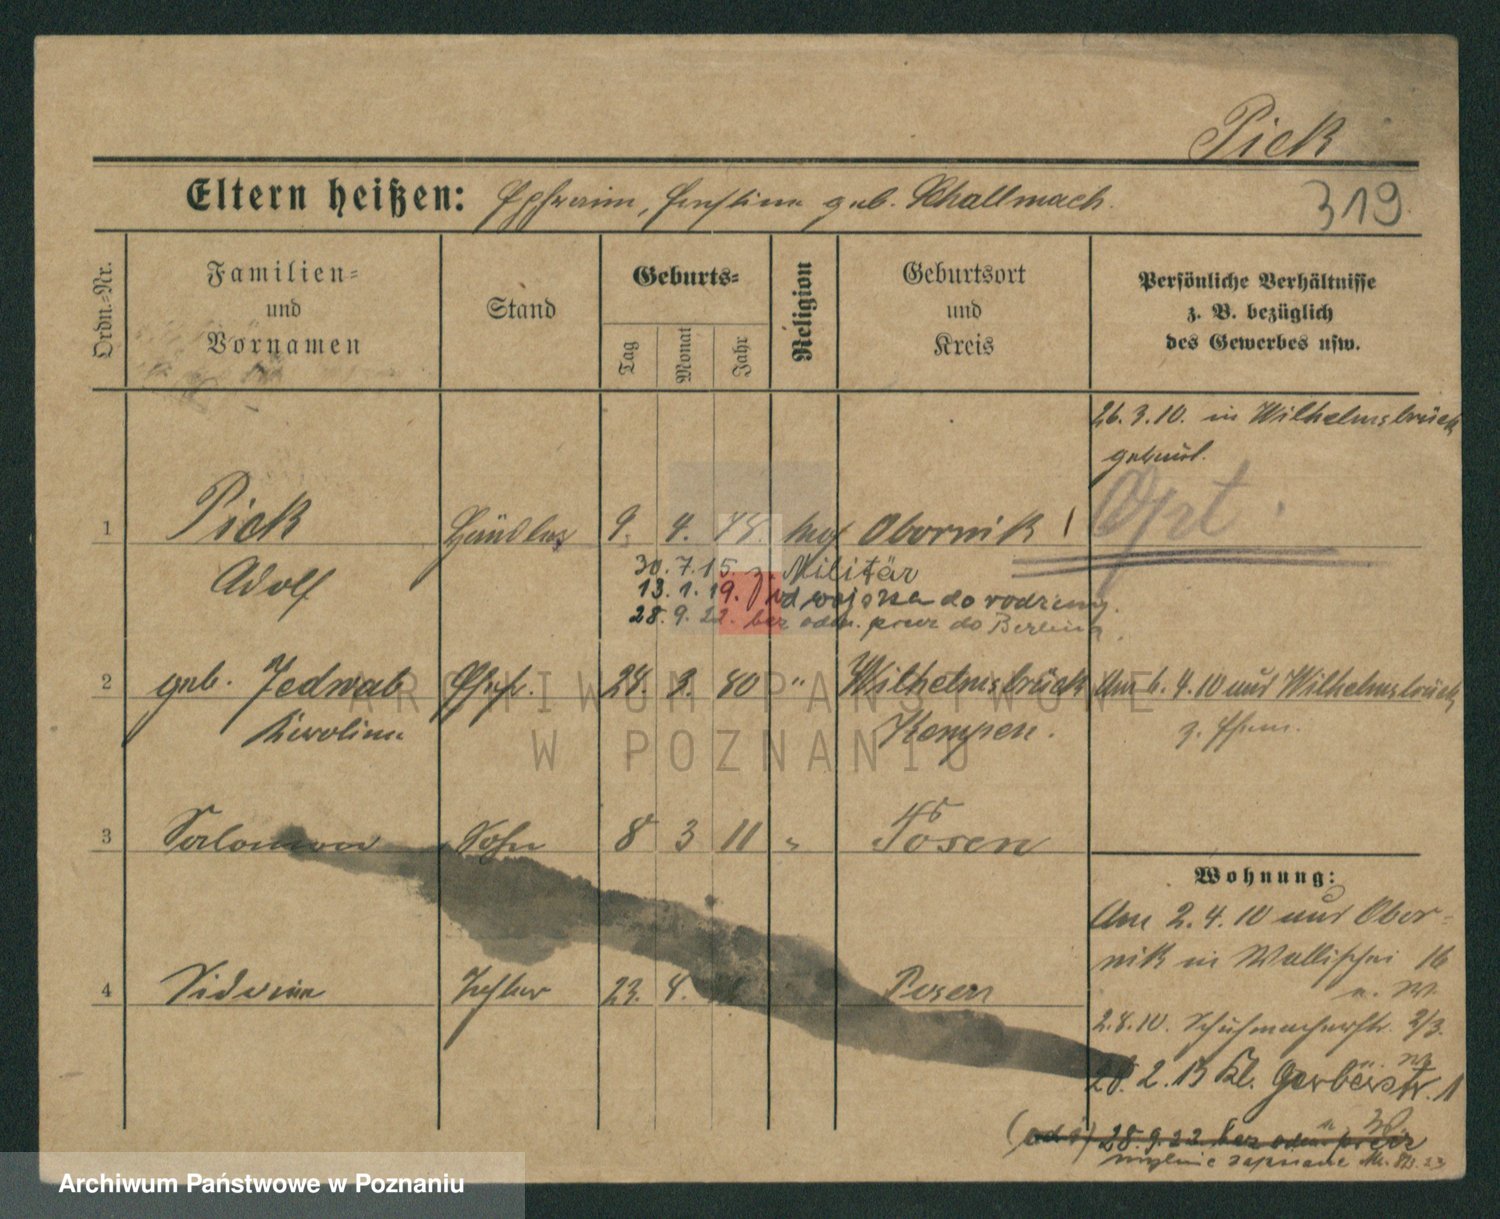 Pick
Eltern heißen: Ephraim, Ernstine geb. Challmach.
319
Ordn.=Nr.
Familien=
und
Vornamen
Stand
Geburts=
Tag
Monat
Jahr
Religion
Geburtsort
und
Kreis
Persönliche Verhältnisse
z. B. bezüglich
des Gewerbes usw.
26. 3. 10. in Wilhelmsbrück
getraut.
Opt.
1 Pick Händler 9. 4. 78. mos Obornik
Adolf
30. 7. 15 z. Militär
13. 1. 19. od wojska do rodziny.
28. 9. 22. bez odm. do Berlina.
2 geb. Jedwab Ehefr. 28. 3. 80 " Wilhelmsbrück Am 6. 4. 10 aus Wilhelmsbrück
Karoline Kempen. z. Ehem.
3 Salomon Sohn 8 3 11 " Posen
Wohnung:
Am 2. 4. 10 aus Obor-
nik in Wallischei 16
4 Tochter 23. 4. Posen
b. W.
2. 8. 10. Schuhmacherstr. 2/3.
28. 2. 13 Kl. Gerberstr. 1
28. 9. 22 bez odm.
mylnie zapisane
ARCHIWUM PAŃSTWOWE
W POZNANIU
Archiwum Państwowe w Poznaniu